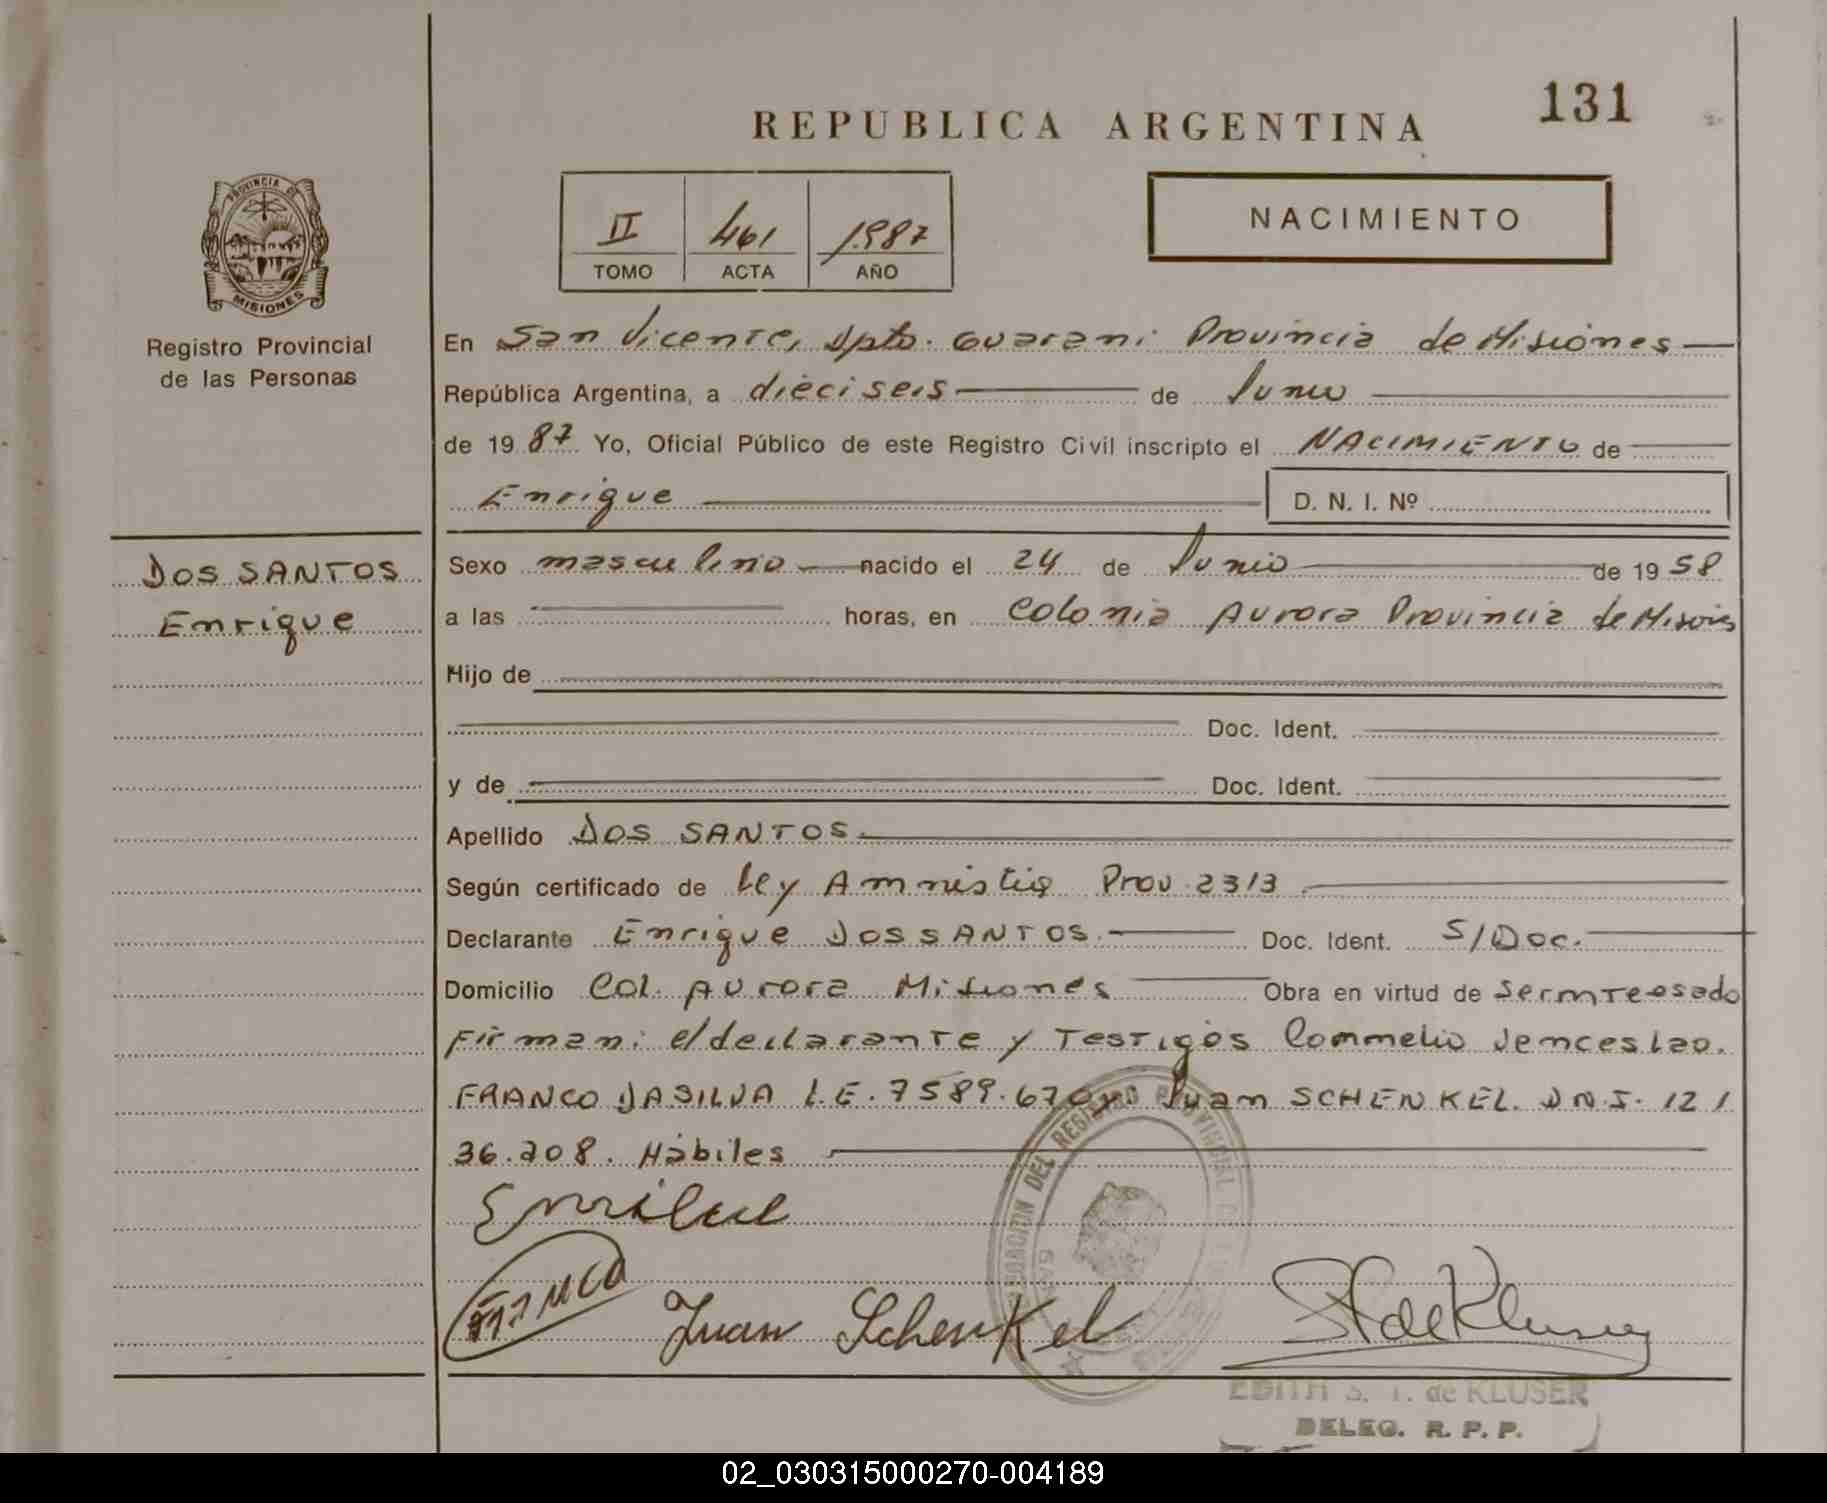 131
REPUBLICA ARGENTINA
II 461 1987
TOMO ACTA AÑO
NACIMIENTO
PROVINCIA DE
MISIONES
Registro Provincial
de las Personas
En San Vicente, Dpto. Guarani Provincia de Misiones
República Argentina, a dieciseis de Junio
de 1987 Yo, Oficial Público de este Registro Civil inscripto el NACIMIENTO de
Enrique D. N. I. Nº
DOS SANTOS
Enrique
Sexo masculino nacido el 24 de Junio de 1958
a las horas, en Colonia Aurora Provincia de Misiones
Hijo de
Doc. Ident.
y de Doc. Ident.
Apellido DOS SANTOS.
Según certificado de Ley Amnistia Prov. 2313
Declarante Enrique DOS SANTOS. Doc. Ident. S/Doc.
Domicilio Col. Aurora Misiones Obra en virtud de ser interesado
Firman: el declarante y Testigos Commelio Venceslao.
FRANCO DASILVA L.E. 7589.670 y Juan SCHENKEL. D.N.I. 121
36.208. Hàbiles
Franco
Juan Schenkel
EDITH S. T. de KLUSER
DELEG. R. P. P.
02_030315000270-004189